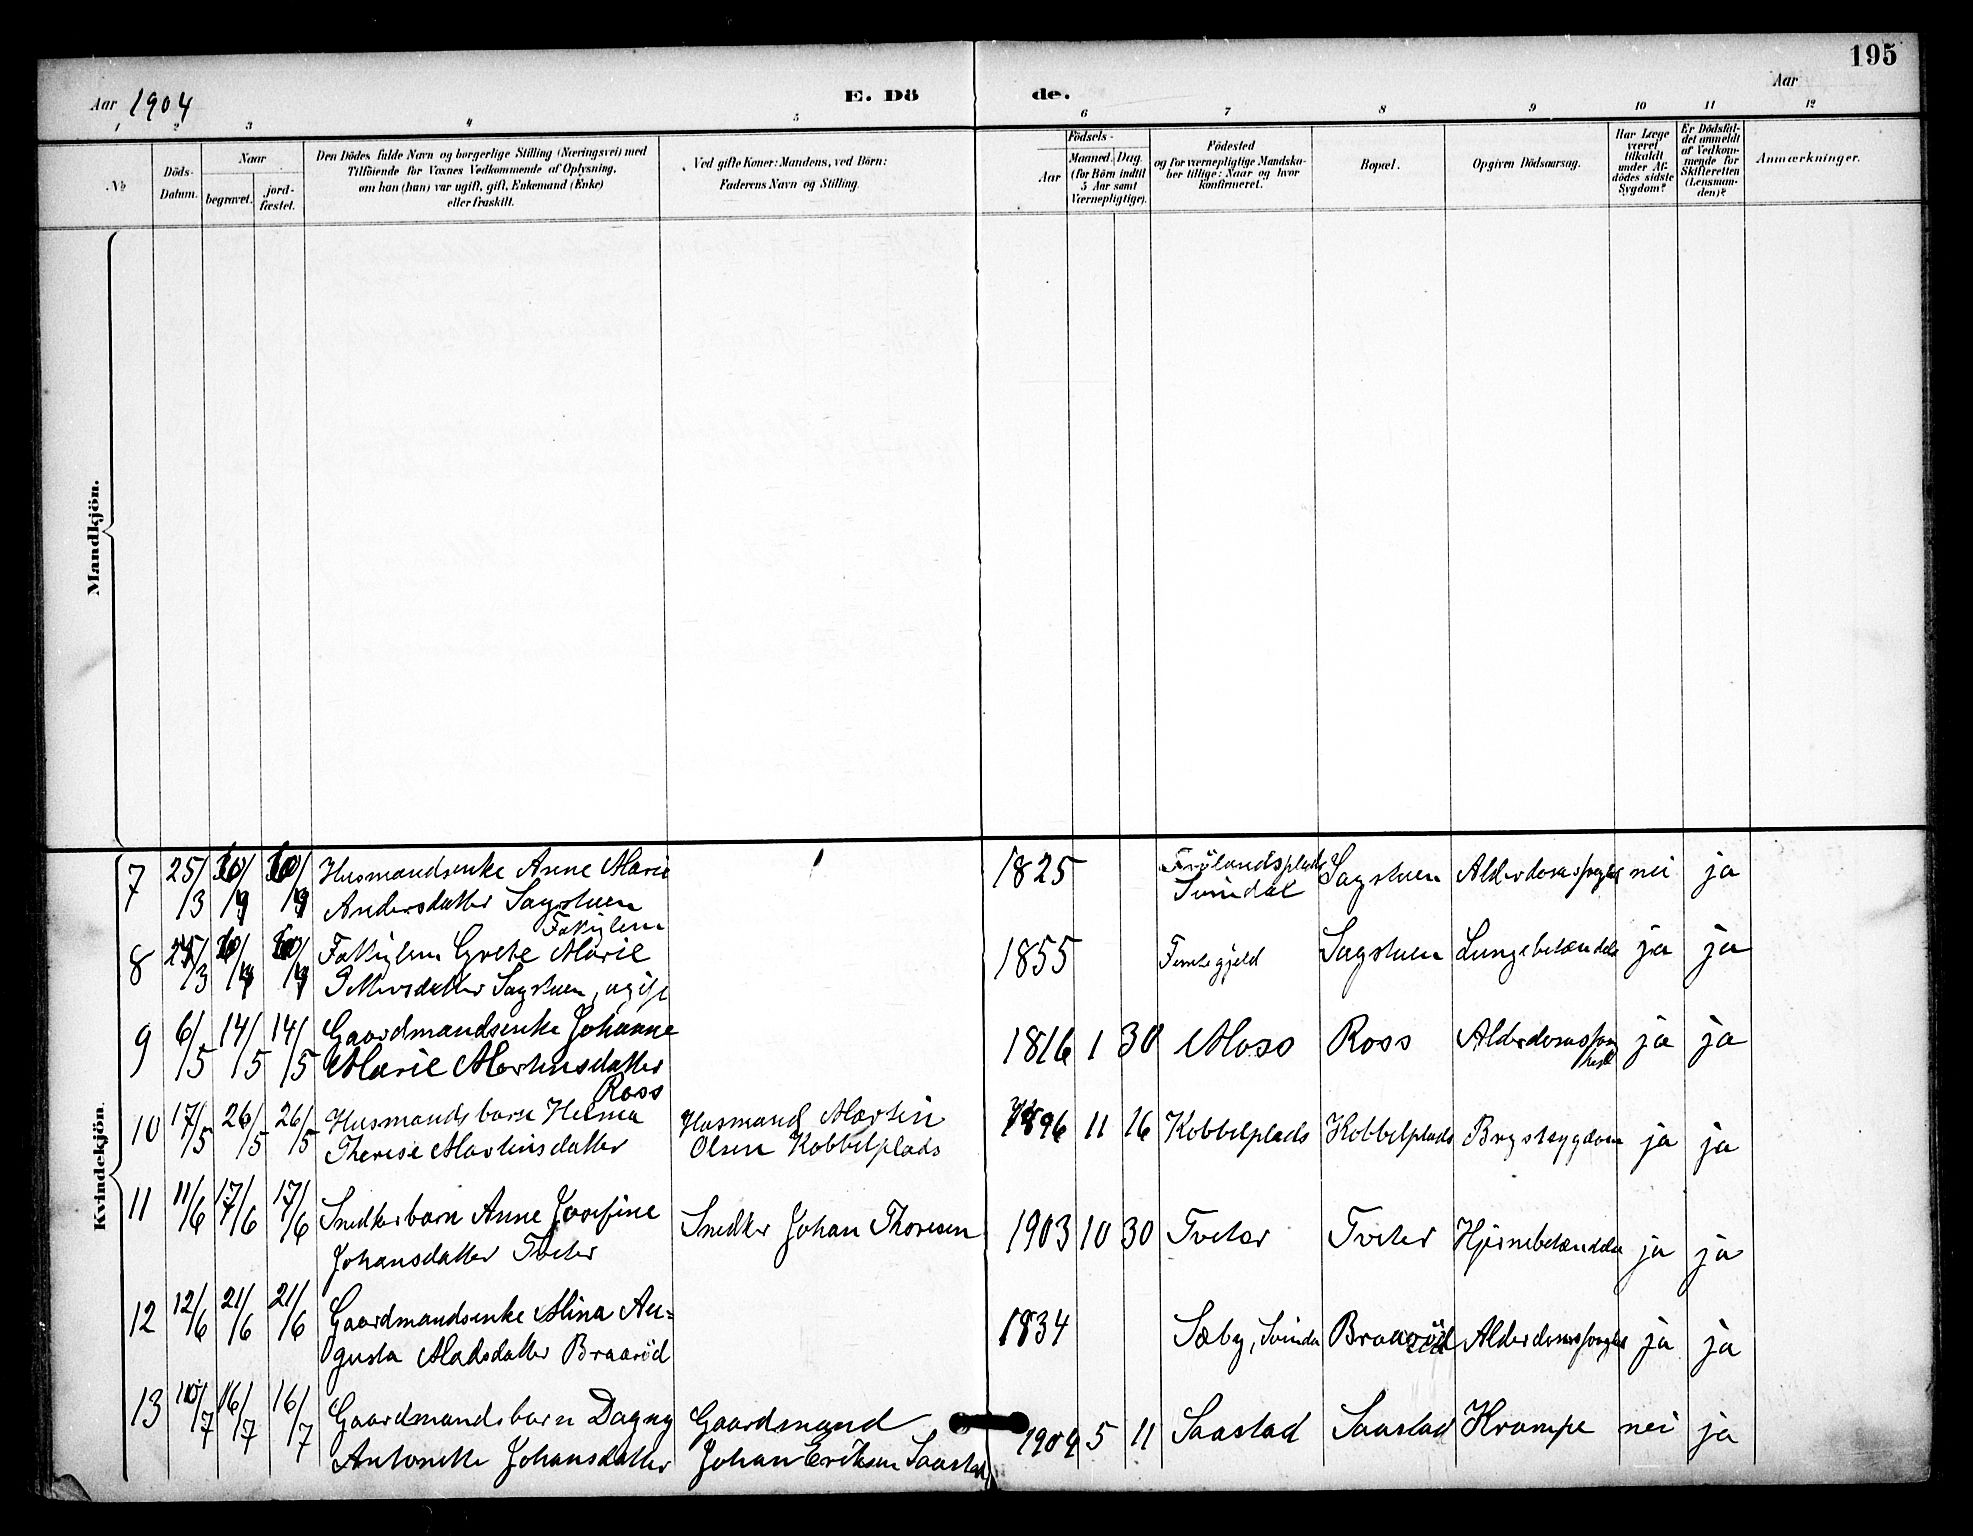 195
Aar 1904
E. Dö de.
Aar
1 2 3 4 5 6 7 8 9 10 11 12
No
Döds-
Datum.
Naar
begravet.
jord-
fæstet.
Den Dödes fulde Navn og borgerlige Stilling (Næringsvei) med
Tilföiende for Voxnes Vedkommende af Oplysning,
om han (hun) var ugift, gift, Enkemand (Enke)
eller fraskilt.
Ved gifte Koner: Mandens, ved Börn:
Faderens Navn og Stilling.
Födsels-
Aar
Maaned. Dag.
(for Börn indtil
5 Aar samt
Værnepligtige).
Födested
og for værnepligtige Mandska-
ber tillige: Naar og hvor
konfirmeret.
Bopæl.
Opgiven Dödsaarsag.
Har Læge
været
tilkaldt
under Af-
dödes sidste
Sygdom?
Er Dödsfal-
det anmeldt
af Vedkom-
mende for
Skifteretten
(Lensman-
den)?
Anmærkninger.
Mandkjön.
Kvindekjön.
7 25/3 Husmandsenke Anne Marie 1825 Frölandsplads Sagstuen Alderdomssvaghed nei ja
Andersdatter Sagstuen Svindal
Fakylem
8 /3 Fakylem Grete Marie 1855 Sagstuen Lungebetændelse ja ja
Pettersdatter Sagstuen, ugift
9 6/5 14/5 14/5 Gaardmandsenke Johanne 1816 1 30 Moss Ross Alderdomssvag ja ja
Marie Martinsdatter hed
Ross
10 17/5 26/5 26/5 Husmandsbarn Helma Husmand Martin 1896 11 16 Kobbelplads Kobbelplads Brystsygdom ja ja
Therese Martinsdatter Olsen Kobbelplads
11 11/6 17/6 17/6 Snedkerbarn Anne Josefine Snedker Johan Thoresen 1903 10 30 Tveter Tveter Hjernebetændelse ja ja
Johansdatter Tveter
12 12/6 21/6 21/6 Gaardmandsenke Mina Au= 1834 Sæby, Svinda Braaröd Alderdomssvaghed ja ja
gusta Madsdatter Braaröd
13 10/7 16/7 16/7 Gaardmandsbarn Dagny Gaardmand 1904 5 11 Saastad Saastad Krampe nei ja
Antonette Johansdatter Johan Eriksen Saastad